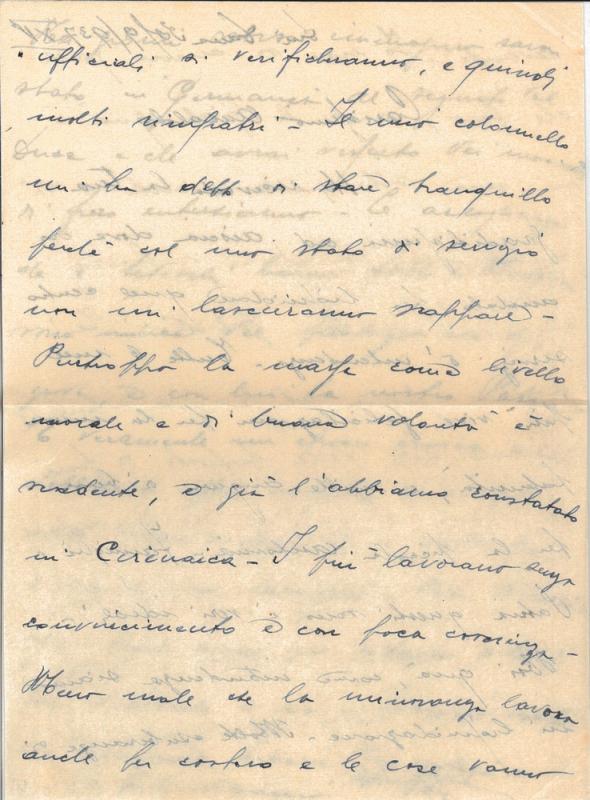 ufficiali si verificheranno, e quindi
molti rimpatri - Il mio colonnello
mi ha detto di stare tranquillo
perchè col mio stato di servizio
non mi lasceranno scappare -
Purtroppo la massa come livello
morale e di buona volontà è
scadente, e già l'abbiamo constatato
in Cirenaica - I più lavorano senza
convincimento e con poca coscienza -
Meno male che la minoranza lavora
anche per costoro e le cose vanno